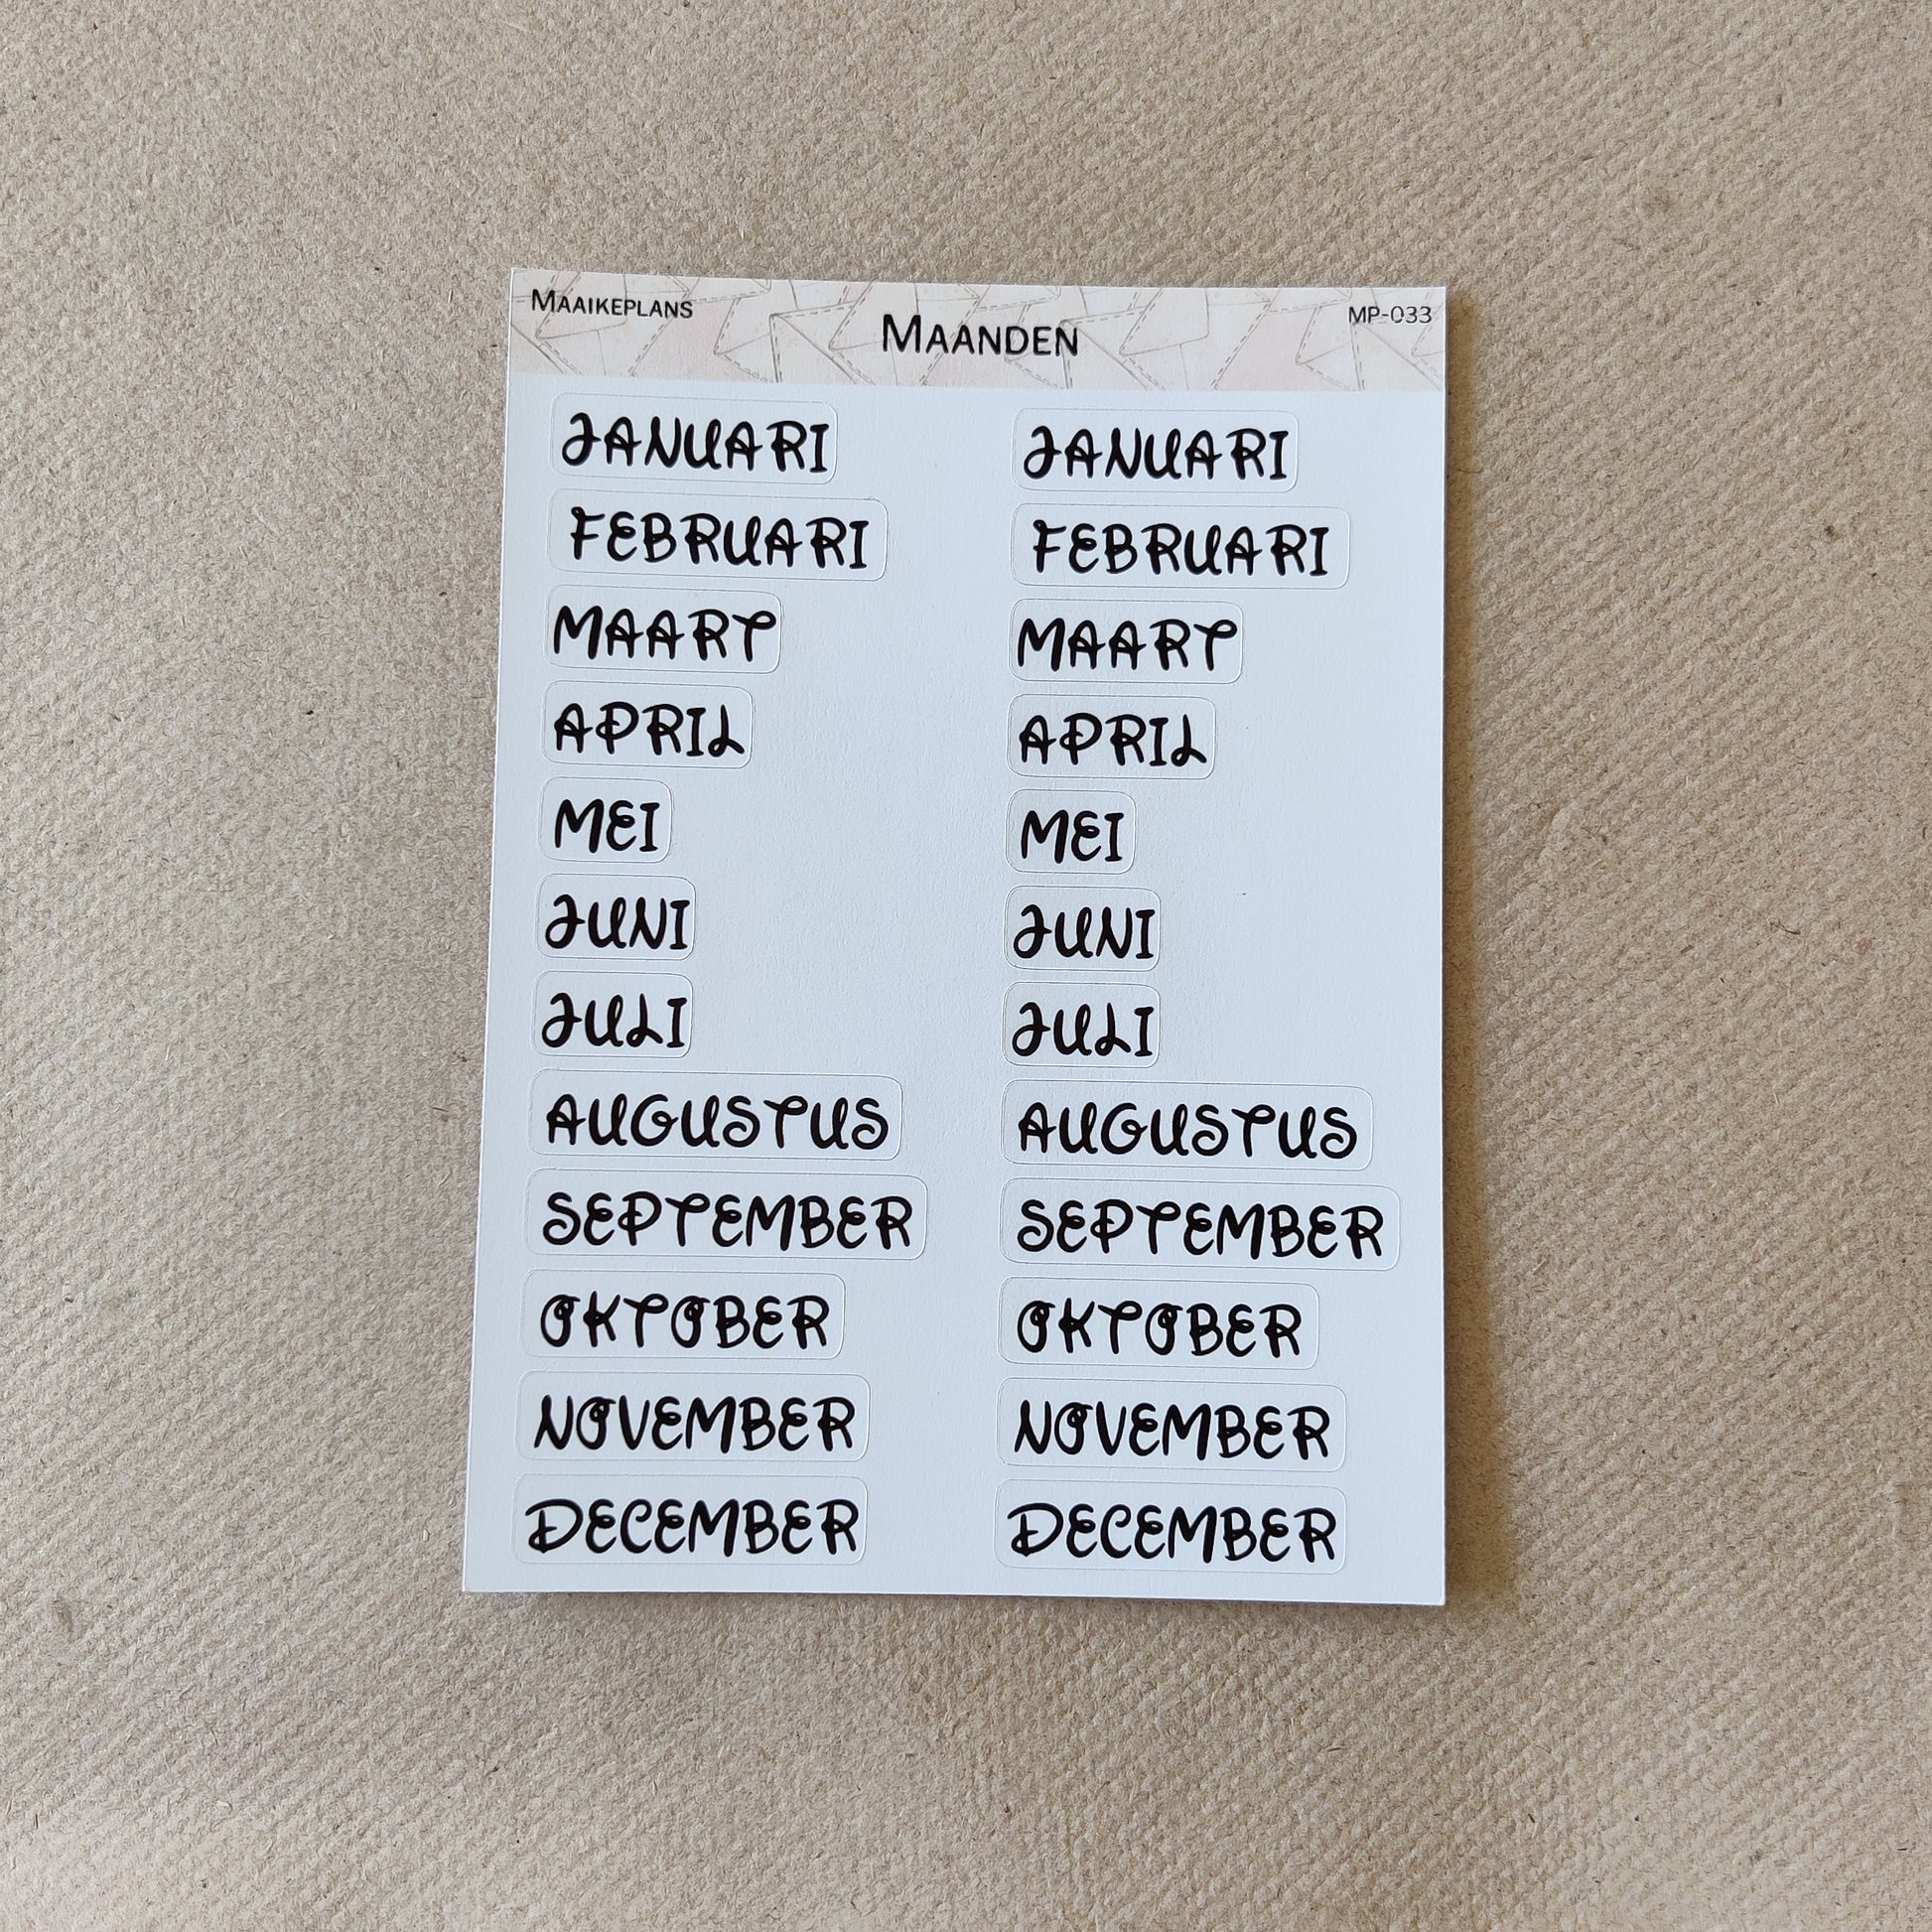 MAAIKEPLANS
MAANDEN
MP-033
JANUARI JANUARI
FEBRUARI FEBRUARI
MAART MAART
APRIL APRIL
MEI MEI
JUNI JUNI
JULI JULI
AUGUSTUS AUGUSTUS
SEPTEMBER SEPTEMBER
OKTOBER OKTOBER
NOVEMBER NOVEMBER
DECEMBER DECEMBER